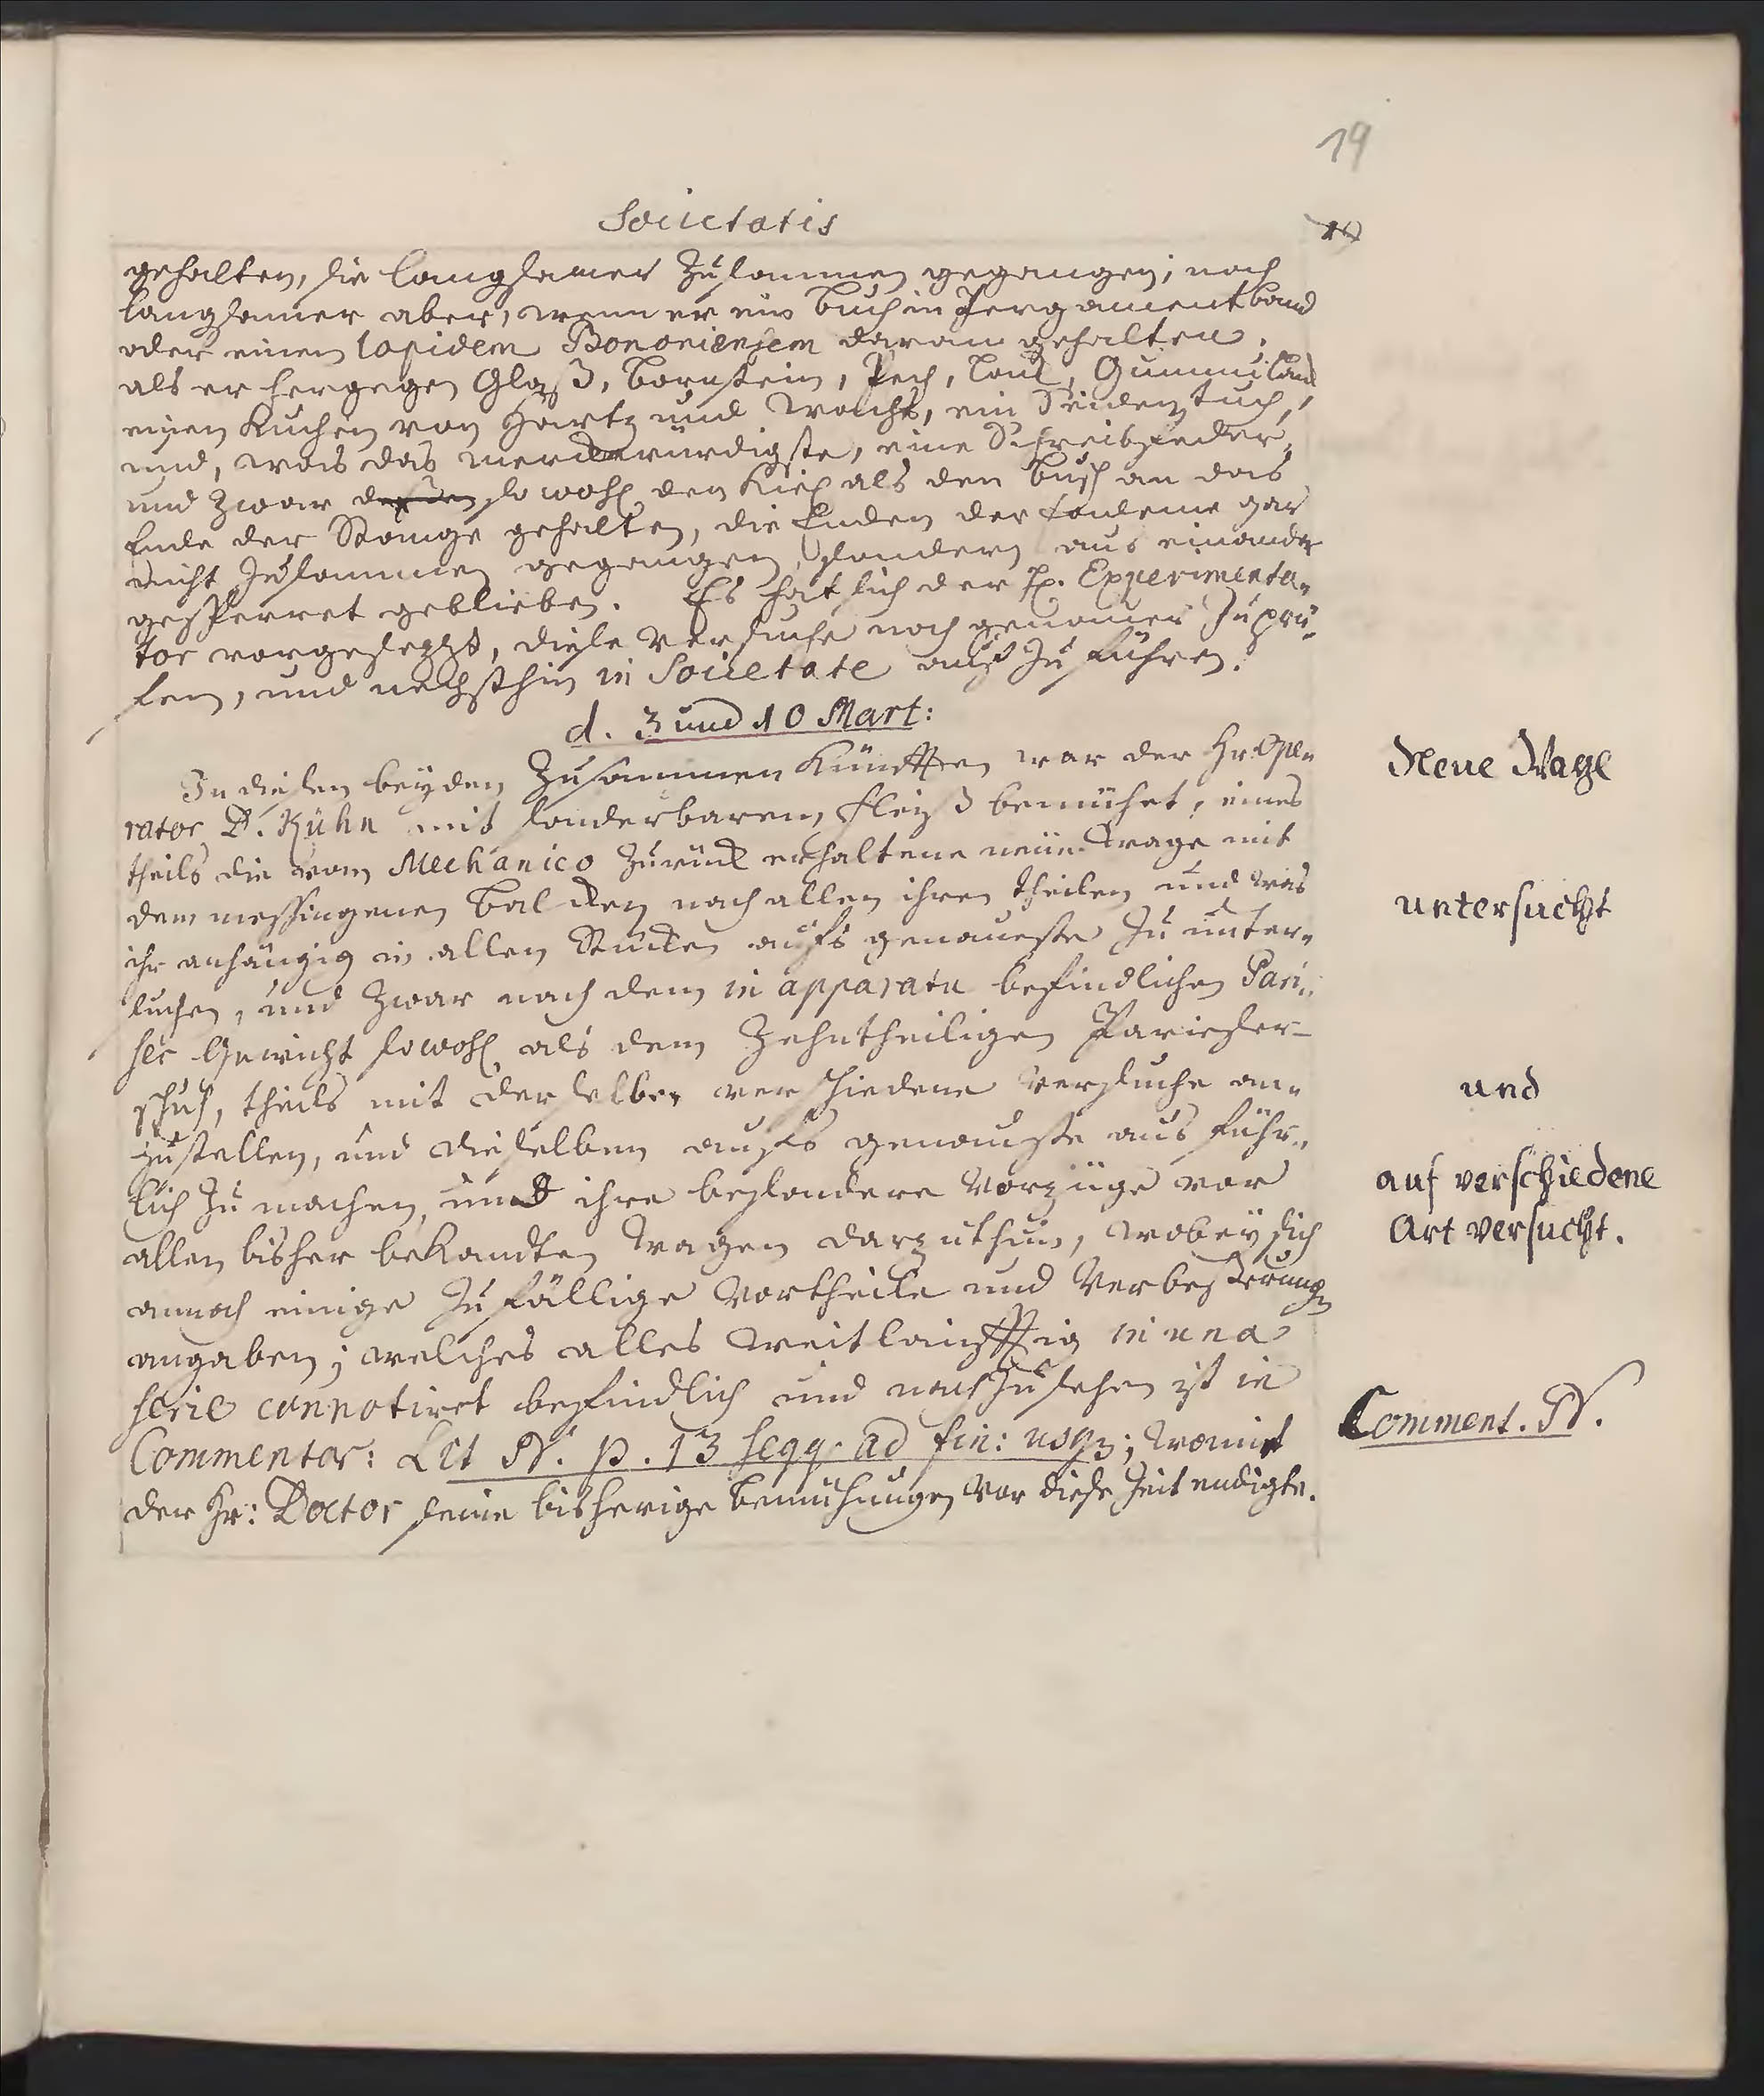 19
Societatis
19
gehalten, sie langsamer zusammen gegangen; noch
langsamer aber, wenn er ein Buch in Pergamentband
oder einen lapidem Bononiensem daran gehalten.
als er hergegen Glaß, Bornstein, Pech, Lack, Gummilack
einen Kuchen von Hartz und Wachs, ein Seidenztuch,
und, was das merckwürdigste, eine Schreibfeder,
und zwar so wohl den Kiel als den Busch an das
Ende der Stange gehalten, die Enden der Fademe gar
nicht zusammen gegangen, sondern aus einander
gesperret geblieben. Es hat sich der H. Experimenta„
tor vorgesezzt, diese Versuche noch genauer zu prü„
fen, und nechsthin in Societate auszuführen.
d. 3 und 10 Mart:
In diesen beyden Zusammen Künfften war der Hr. Ope„
rator D. Kühn mit sonderbaren Fleiß bemühet, eines
theils die vom Mechanico zurück erhaltene neue Wage mit
dem messingenen Balcken nach allen ihren theilen und was
ihr anhängig in allen Stücken aufs genaueste zu unter„
suchen, und zwar nach dem in apparatu befindlichen Pari„
ser Gewicht sowohl als dem Zehntheiligen Parieser-
schuh, theils mit derselben verschiedene Versuche an„
zustellen, und dieselben aufs genauste ausführ„
lich zu machen, und ihre besondere Vorzüge vor
allen bisher bekandten Wagen darzuthun, wobey sich
annoch einige zufällige Vortheile und Verbesserungen
angaben; welches alles weitläufftig in una
serie connotiret befindlich und nachzusehen ist in
Commentar: Lit N. p. 13 seqq. ad fin: usq3; womit
der Hr: Doctor seine bisherige Bemühungen vor diese Zeit endigte.
Neue Wage
untersucht
und
auf verschiedene
Art versucht.
Comment. N.